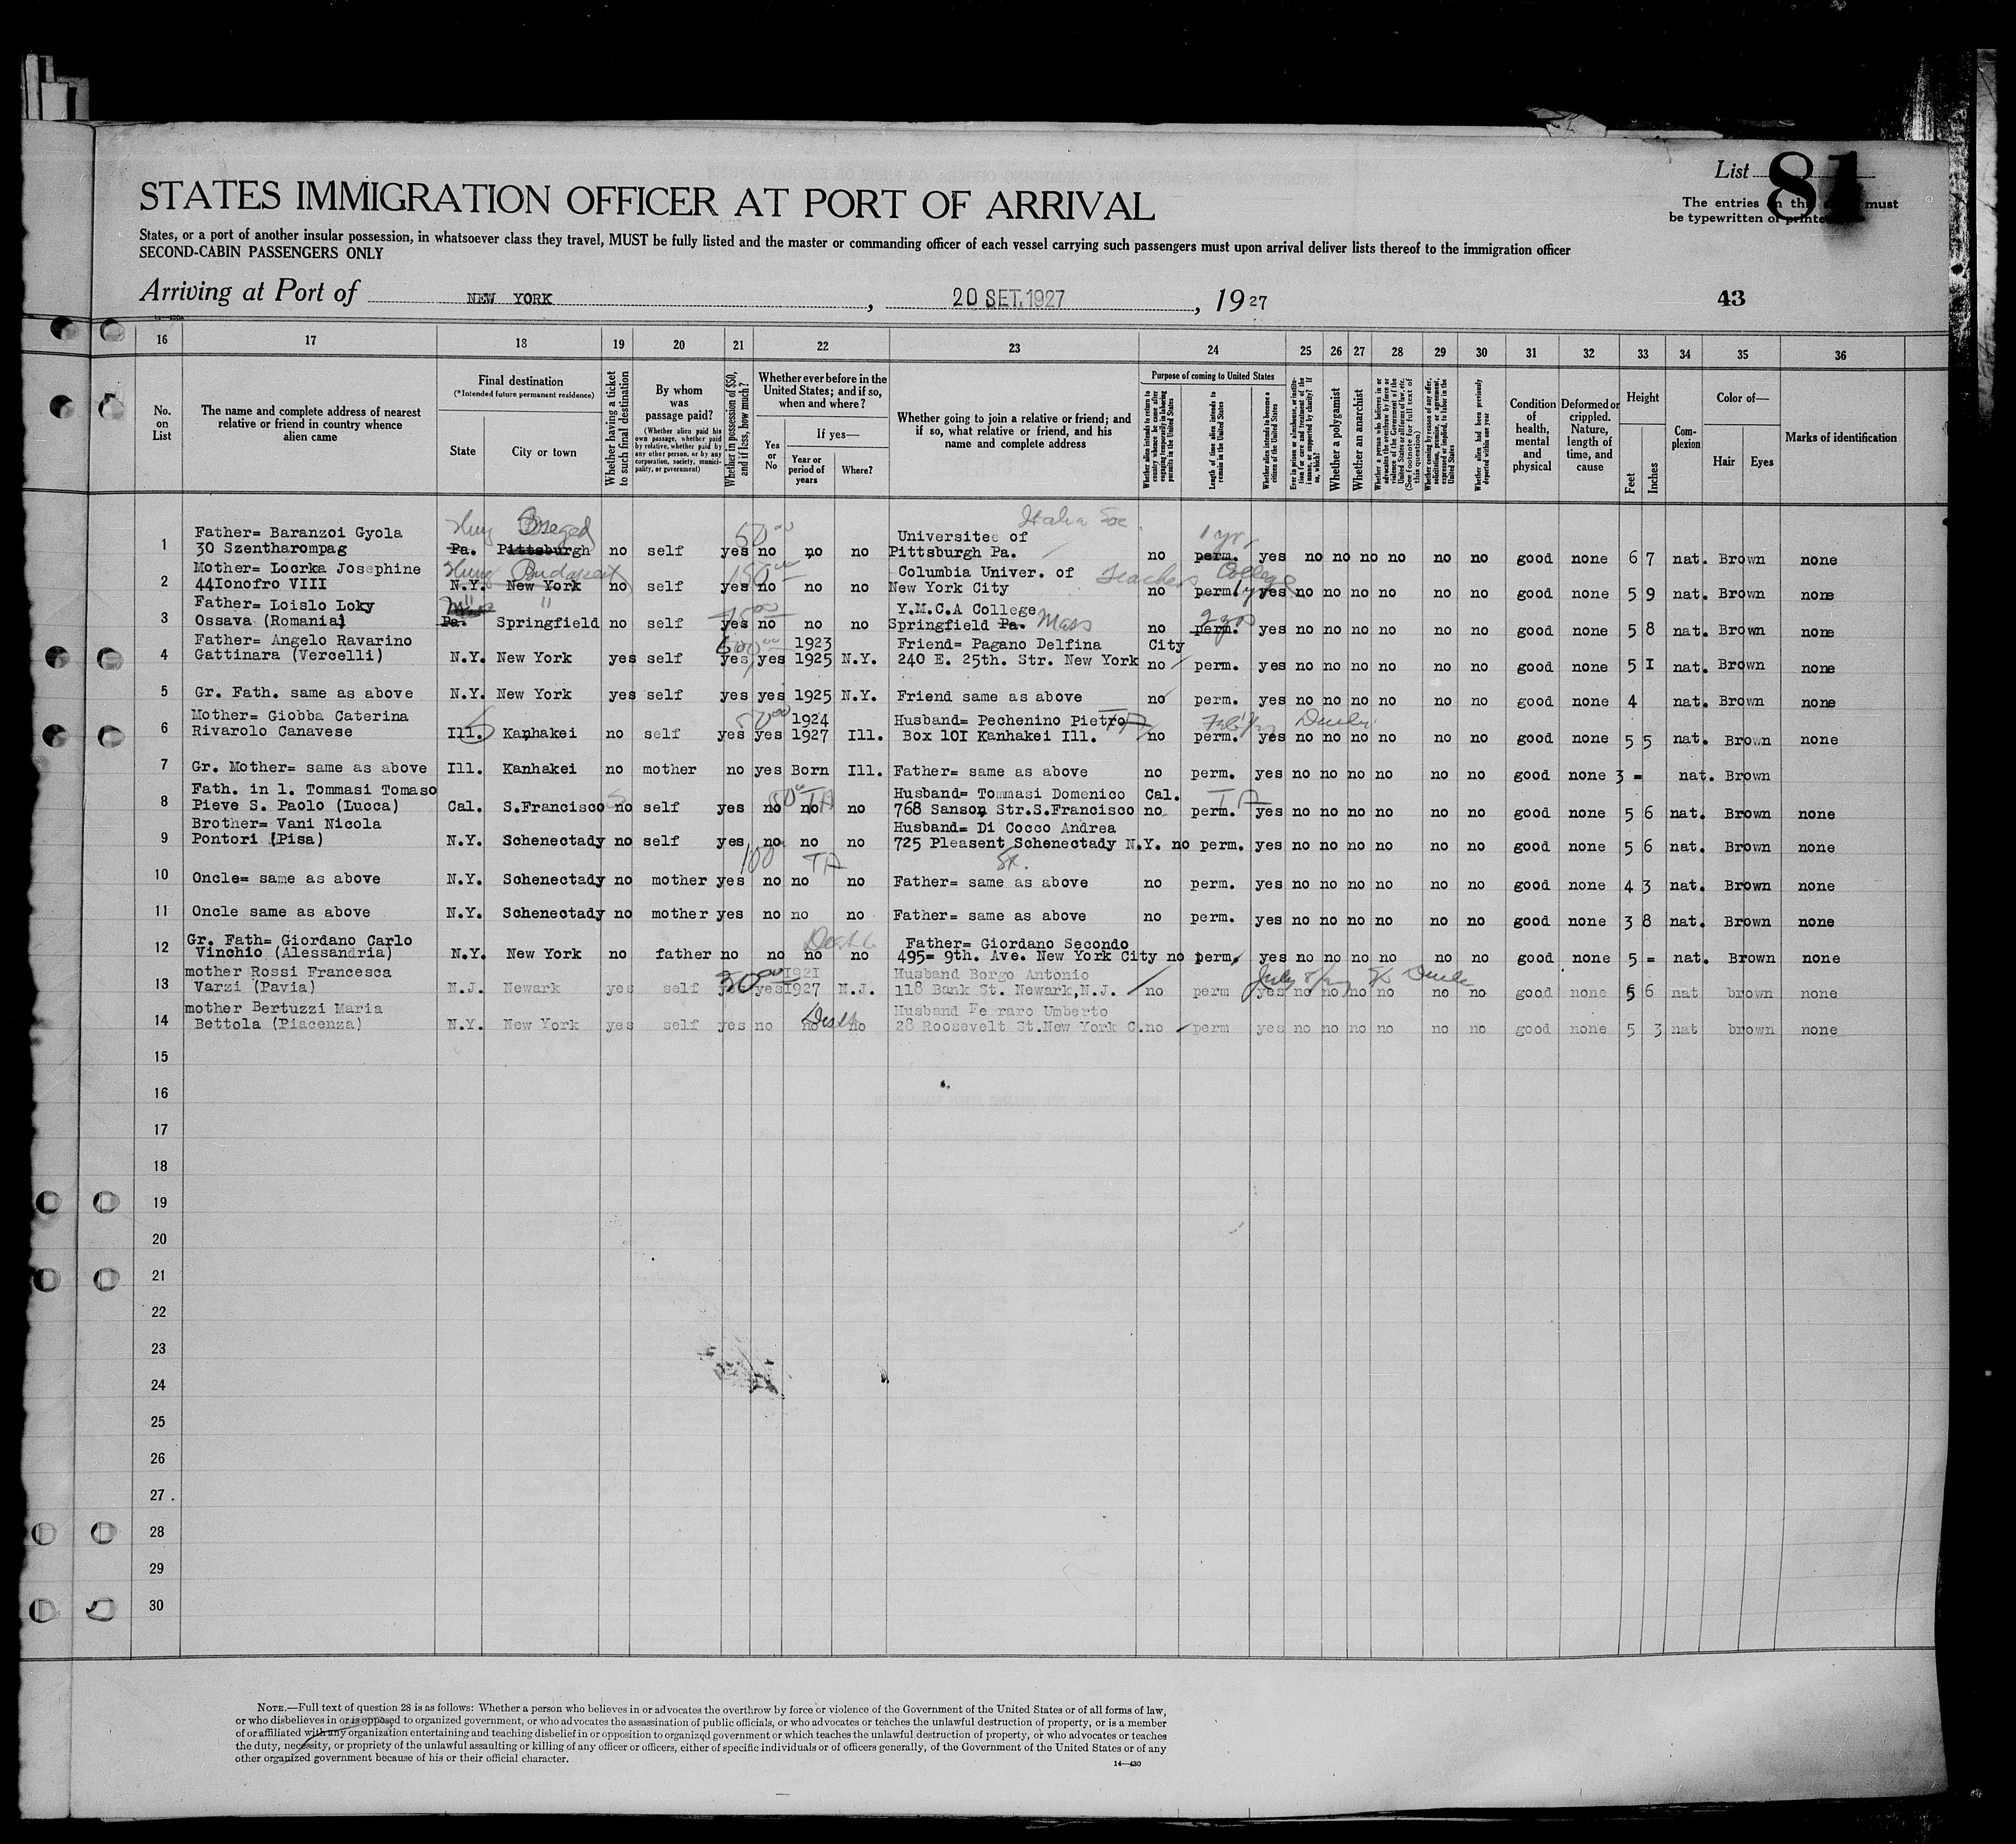 List 81
STATES IMMIGRATION OFFICER AT PORT OF ARRIVAL
The entries on this must
be typewritten or printed
States, or a port of another insular possession, in whatsoever class they travel, MUST be fully listed and the master or commanding officer of each vessel carrying such passengers must upon arrival deliver lists thereof to the immigration officer
SECOND-CABIN PASSENGERS ONLY
Arriving at Port of NEW YORK , 20 SET.1927 , 1927 43
16 17 18 19 20 21 22 23 24 25 26 27 28 29 30 31 32 33 34 35 36
No. on List
The name and complete address of nearest relative or friend in country whence alien came
Final destination
(*Intended future permanent residence)
State
City or town
Whether having a ticket to such final destination
By whom was passage paid?
(Whether alien paid his own passage, whether paid by relative, whether paid by any other person, or by any corporation, society, municipality, or government)
Whether in possession of $50, and if less, how much?
Whether ever before in the United States; and if so, when and where?
Yes or No
If yes—
Year or period of years
Where?
Whether going to join a relative or friend; and if so, what relative or friend, and his name and complete address
Purpose of coming to United States
Whether alien intends to return to country whence he came after engaging temporarily in laboring pursuits in the United States
Length of time alien intends to remain in the United States
Whether alien intends to become a citizen of the United States
Ever in prison or almshouse, or institution for care and treatment of the insane, or supported by charity? If so, which?
Whether a polygamist
Whether an anarchist
Whether a person who believes in or advocates the overthrow by force or violence of the Government of the United States or all forms of law, etc. (See footnote for full text of this question)
Whether coming by reason of any offer, solicitation, promise, or agreement, expressed or implied, to labor in the United States
Whether alien had been previously deported within one year
Condition of health, mental and physical
Deformed or crippled. Nature, length of time, and cause
Height
Feet
Inches
Complexion
Color of—
Hair
Eyes
Marks of identification
Hung Szeged 50 00 Italia Soc. 1 yr.
Father= Baranzoi Gyola Universitee of
1 30 Szentharompag Pa. Pittsburgh no self yes no no no Pittsburgh Pa. no perm. yes no no no no no no good none 6 7 nat. Brown none
Hung Budapest 150 00 Teachers College
Mother= Locrka Josephine Columbia Univer. of
2 44Ionofro VIII N.Y. New York no self yes no no no New York City no perm. 1 yr yes no no no no no no good none 5 9 nat. Brown none
Father= Loislo Loky " 75 00 Y.M.C.A College 2 yrs
3 Ossava (Romania) Pa. Springfield no self yes no no no Springfield Pa. Mass no perm. yes no no no no no no good none 5 8 nat. Brown none
Father= Angelo Ravarino 1923 Friend= Pagano Delfina City
4 Gattinara (Vercelli) N.Y. New York yes self yes yes 1925 N.Y. 240 E. 25th. Str. New York no perm. yes no no no no no no good none 5 I nat. Brown none
5 Gr. Fath. same as above N.Y. New York yes self yes yes 1925 N.Y. Friend same as above no perm. yes no no no no no no good none 4 nat. Brown none
Mother= Giobba Caterina 50 00 1924 Husband= Pechenino Pietro
6 Rivarolo Canavese Ill. Kanhakei no self yes yes 1927 Ill. Box 10I Kanhakei Ill. no perm. yes no no no no no no good none 5 5 nat. Brown none
7 Gr. Mother= same as above Ill. Kanhakei no mother no yes Born Ill. Father= same as above no perm. yes no no no no no no good none 3 = nat. Brown
Fath. in l. Tommasi Tomaso Husband= Tommasi Domenico Cal.
8 Pieve S. Paolo (Lucca) Cal. S.Francisco no self yes no no no 768 Sanson Str.S.Francisco no perm. yes no no no no no no good none 5 6 nat. Brown none
Brother= Vani Nicola Husband= Di Cocco Andrea
9 Pontori (Pisa) N.Y. Schenectady no self yes no no no 725 Pleasent Schenectady N.Y. no perm. yes no no no no no no good none 5 6 nat. Brown none
100 TA St.
10 Oncle= same as above N.Y. Schenectady no mother yes no no no Father= same as above no perm. yes no no no no no no good none 4 3 nat. Brown none
11 Oncle same as above N.Y. Schenectady no mother yes no no no Father= same as above no perm. yes no no no no no no good none 3 8 nat. Brown none
Gr. Fath= Giordano Carlo Father= Giordano Secondo
12 Vinchio (Alessandria) N.Y. New York no father no no no no 495= 9th. Ave. New York City no perm. yes no no no no no no good none 5 = nat. Brown none
mother Rossi Francesca 50 00 1921 Husband Borgo Antonio
13 Varzi (Pavia) N.J. Newark yes self yes yes 1927 N.J. 118 Bank St. Newark,N.J. no perm yes no no no no no no good none 5 6 nat brown none
mother Bertuzzi Maria Husband Ferraro Umberto
14 Bettola (Piacenza) N.Y. New York yes self yes no no no 28 Roosevelt St.New York C. no perm yes no no no no no no good none 5 3 nat brown none
15
16
17
18
19
20
21
22
23
24
25
26
27
28
29
30
NOTE.—Full text of question 28 is as follows: Whether a person who believes in or advocates the overthrow by force or violence of the Government of the United States or of all forms of law,
or who disbelieves in or is opposed to organized government, or who advocates the assassination of public officials, or who advocates or teaches the unlawful destruction of property, or is a member
of or affiliated with any organization entertaining and teaching disbelief in or opposition to organized government or which teaches the unlawful destruction of property, or who advocates or teaches
the duty, necessity, or propriety of the unlawful assaulting or killing of any officer or officers, either of specific individuals or of officers generally, of the Government of the United States or of any
other organized government because of his or their official character.
14—430